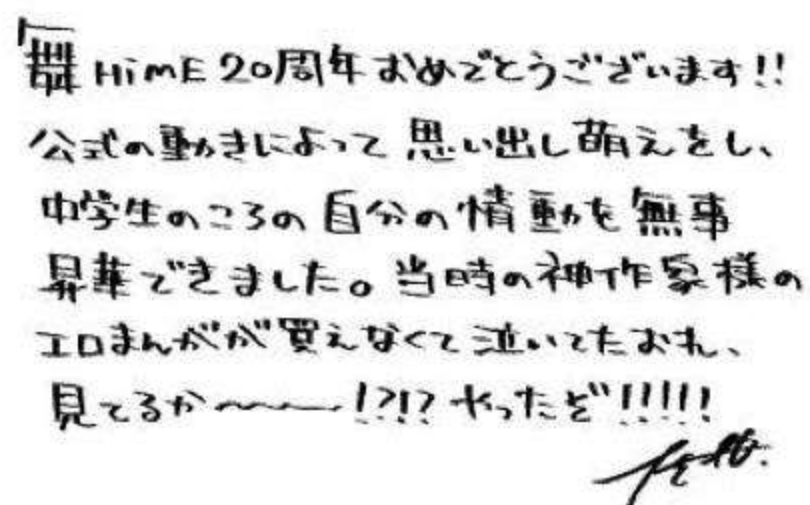 舞HiME20周年おめでとうございます!!
公式の動きによって思い出し萌えをし、
中学生のころの自分の情動を無事
昇華できました。当時の神作家様の
エロまんがが買えなくて泣いてたおれ、
見てるか〜〜〜!?!?やったぞ!!!!!